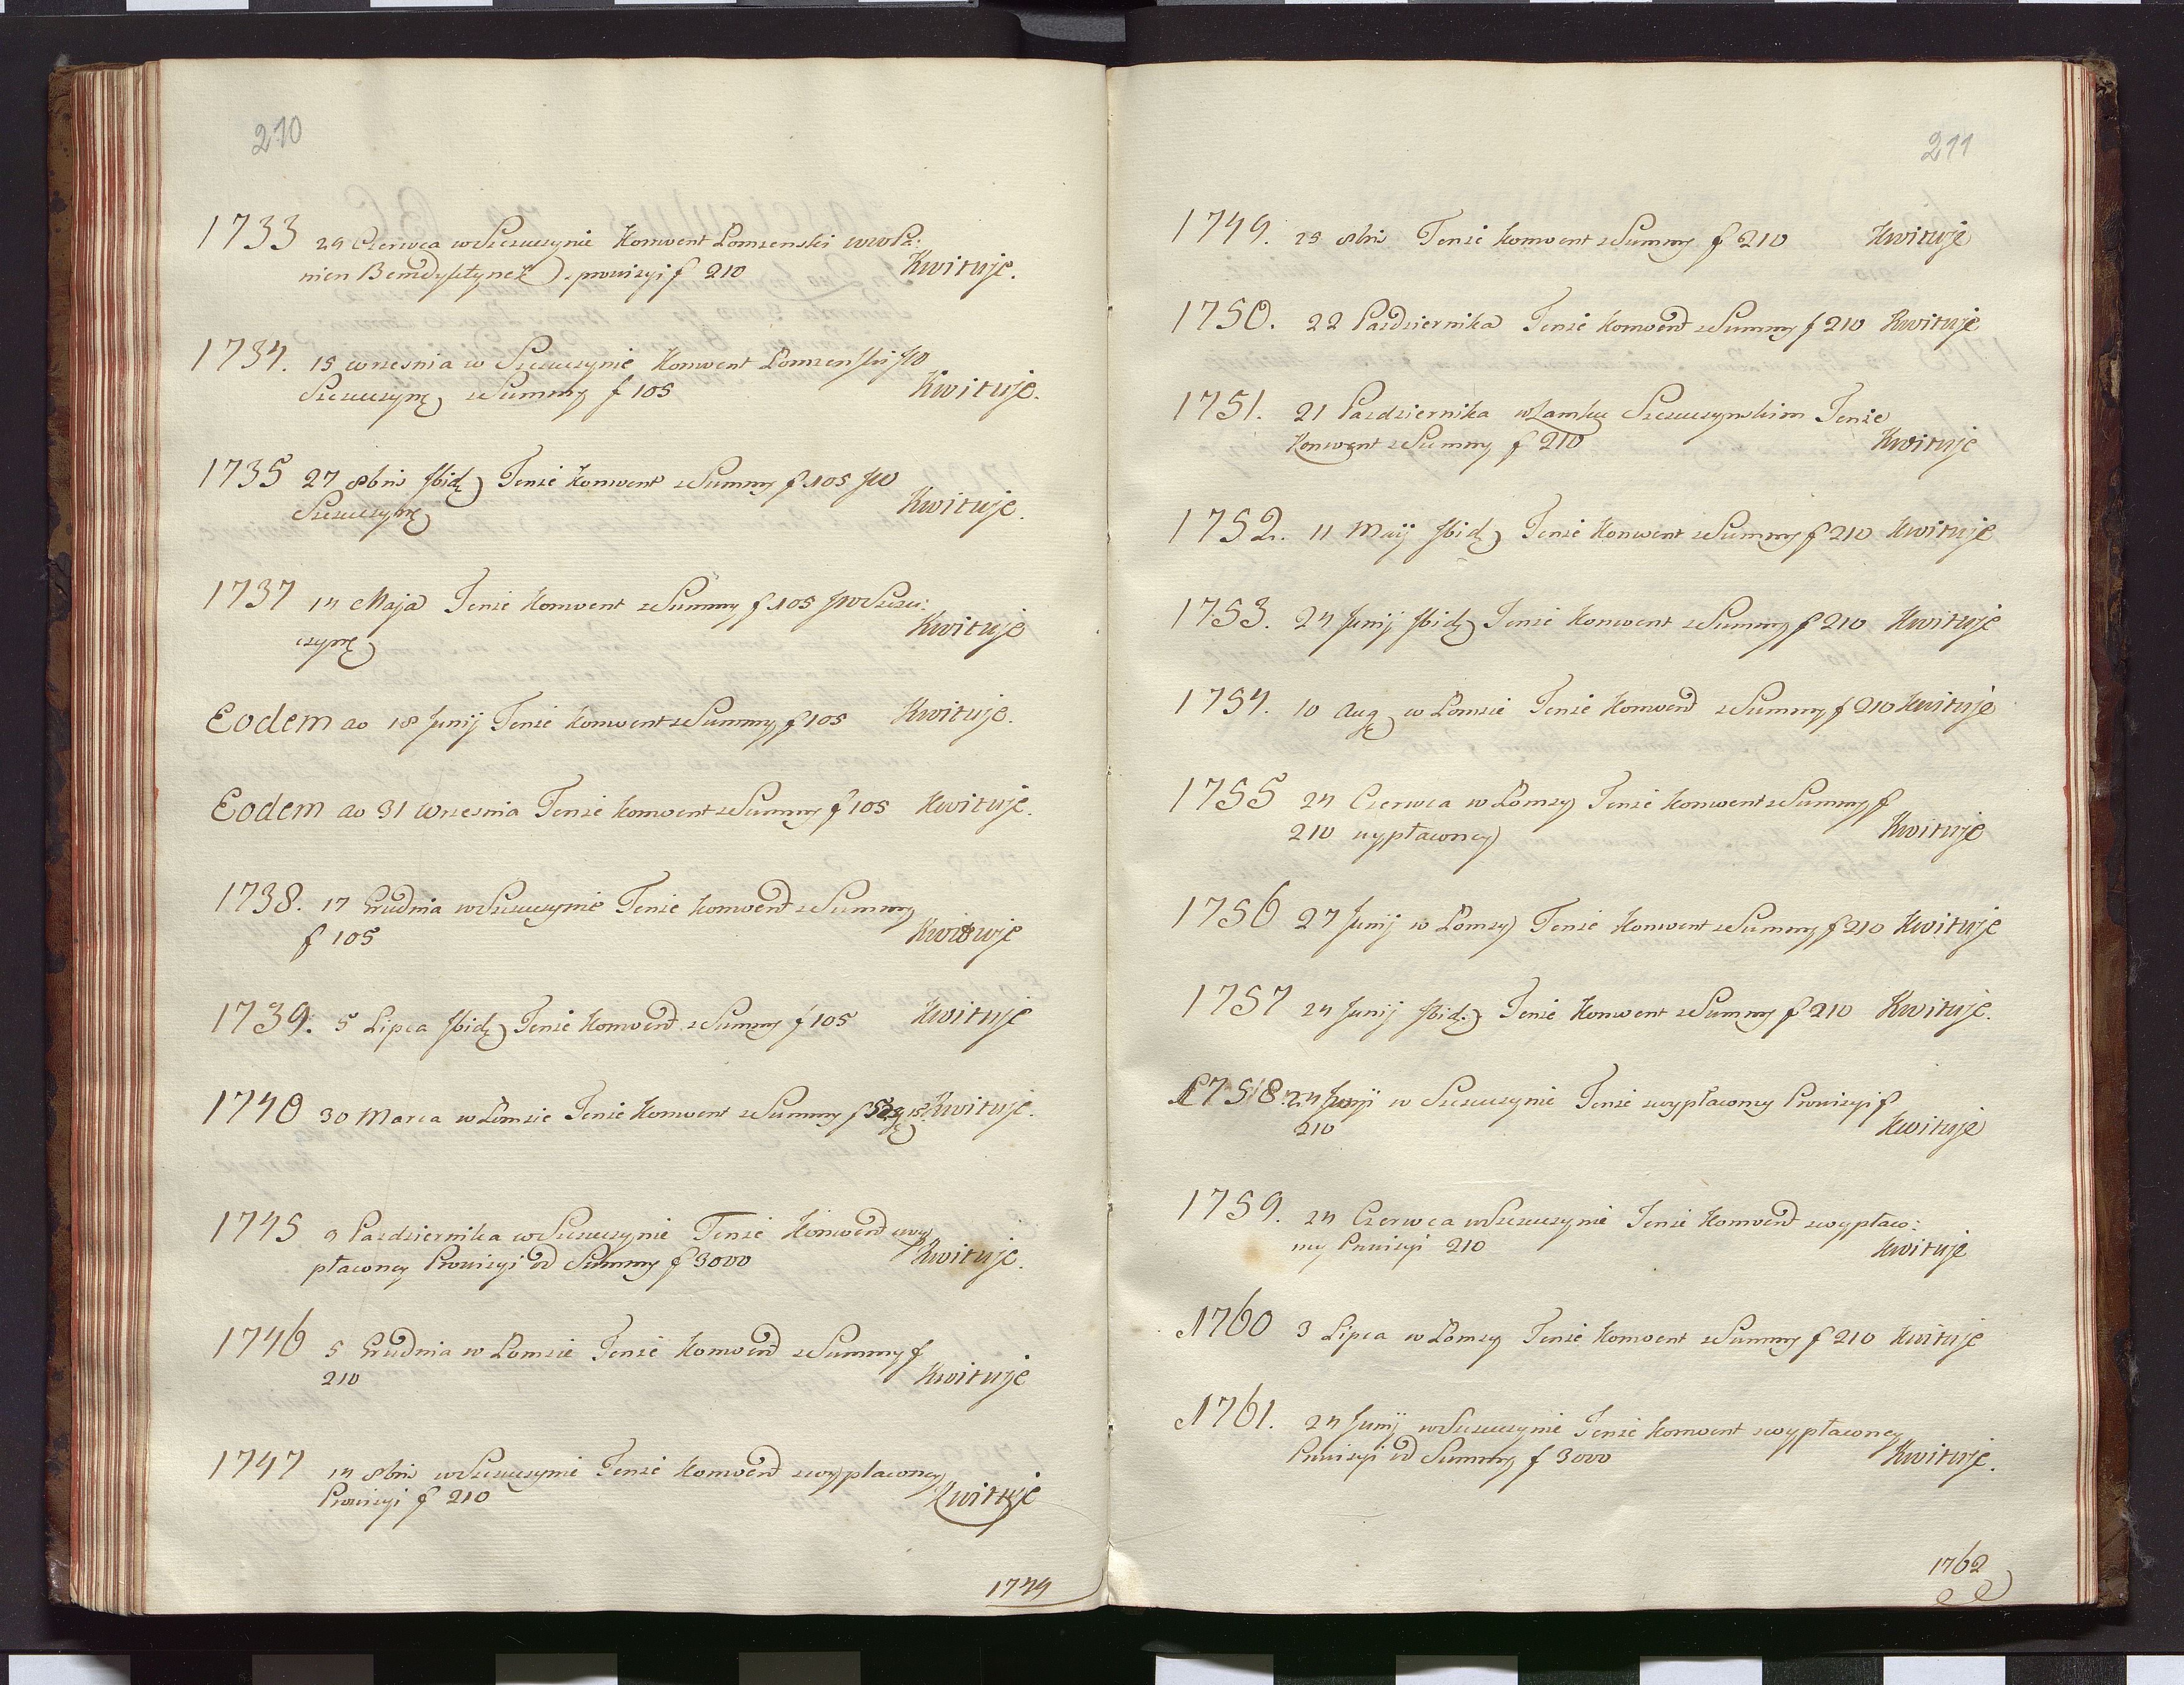 210
1733 24 Czerwca w Szczuczynie Konwent Łomzenski WW Pa:
nien Benedyktynek z prowizyi f 210 Kwituje.
1734. 15 wrzesnia w Szczuczynie Konwent Łomzenski
Szczuczynę z Summy f 105 Kwituje.
1735 27 8bris Ibidę Tenże Konwent z Summy f 105
Szczuczynę Kwituje.
1737 14 Maja Tenże Konwent z Summy f 105 Szczu:
czynę Kwituje
Eodem ao 18 Junij Tenże Konwent z Summy f 105 Kwituje.
Eodem ao 31 Wrzesnia Tenże Konwent z Summy f 105 Kwituje.
1738. 17 Grudnia w Szczuczynie Tenże Konwent z Summy
f 105 Kwituje
1739. 5 Lipca Ibidę Tenże Konwent z Summy f 105 Kwituje
1740 30 Marca w Łomzie Tenże Konwent z Summy f Kwituje.
1745 9 Pazdziernika w Szczuczynie Tenże Konwent z wy
płaconey Prowizyi od Summy f 3000 Kwituje.
1746 5 Grudnia w Łomzie Tenże Konwent z Summy f
210 Kwituje
1747 14 8bris w Szczuczynie Tenże Konwent z wypłaconey
Prowizyi f 210 Kwituje
1749
211
1749. 25 8bris Tenże Konwent z Summy f 210 Kwituje
1750. 22 Pazdziernika Tenże Konwent z Summy f 210 Kwituje
1751. 21 Pazdziernika w Zamku Szczuczynskim Tenże
Konwent z Summy f 210 Kwituje
1752. 11 Maij Ibidę Tenże Konwent z Summy f 210 Kwituje
1753. 24 Junij Ibidę Tenże Konwent z Summy f 210 Kwituje
1754. 10 Augę w Łomzie Tenże Konwent z Summy f 210 Kwituje
1755 24 Czerwca w Łomzy Tenże Konwent z Summy f
210 wypłaconey Kwituje
1756 27 Junij w Łomzy Tenże Konwent z Summy f 210 Kwituje
1757 24 Junij Ibidę Tenże Konwent z Summy f 210 Kwituje.
1758. 24 Junij w Szczuczynie Tenże z wypłaconey Prowizyi f
210 Kwituje
1759. 24 Czerwca w Szczuczynie Tenże Konwent z wypłaco:
ney Prowizyi 210 Kwituje
1760 3 Lipca w Łomzy Tenże Konwent z Summy f 210 Kwituje
1761. 24 Junij w Szczuczynie Tenże Konwent z wypłaconey
Prowizyi od Summy f 3000 Kwituje.
1762